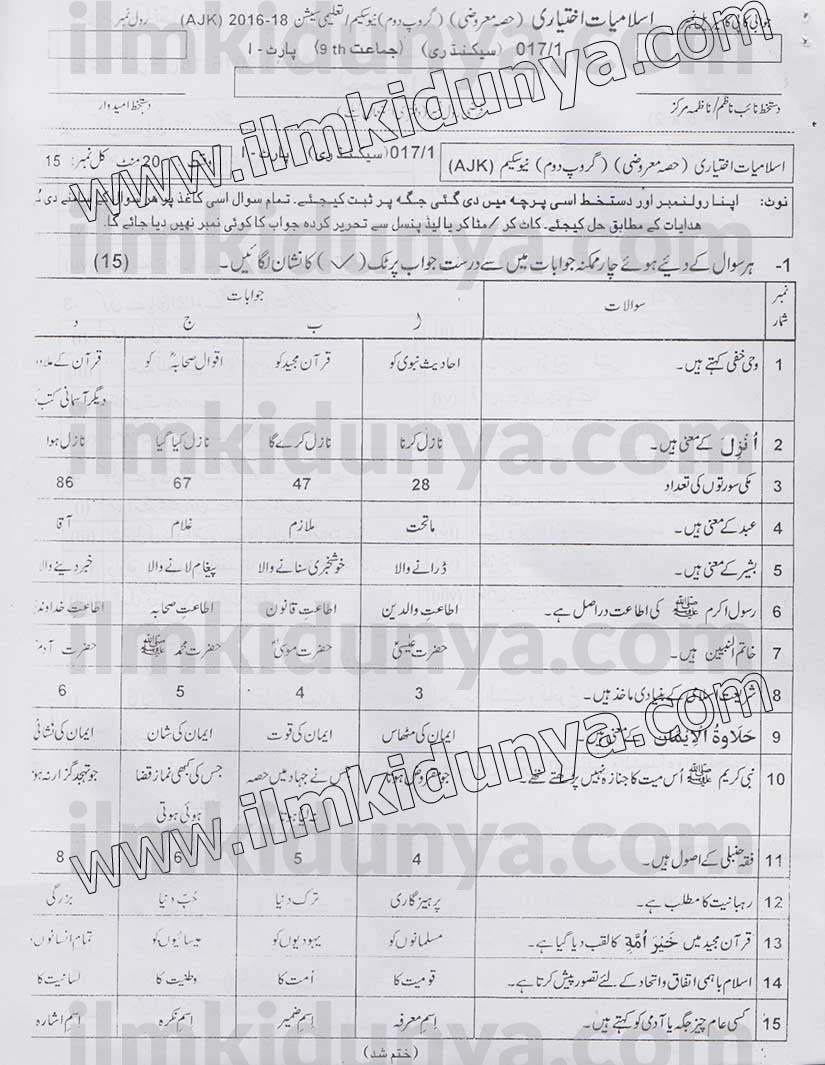 جوابی کاپی کا سیریل نمبر اسلامیات اختیاری (حصہ معروضی) (گروپ دوم) نیو سکیم/تعلیمی سیشن 18-2016 (AJK) رول نمبر
017/1 (سیکنڈری) (جماعت 9th) پارٹ - I
دستخط نائب ناظم / ناظمہ مرکز دستخط امیدوار
اسلامیات اختیاری (حصہ معروضی) (گروپ دوم) نیو سکیم (AJK) 017/1 (سیکنڈری) پارٹ - I وقت: 20 منٹ کل نمبر: 15
نوٹ: اپنا رولنمبر اور دستخط اسی پرچہ میں دی گئی جگہ پر ثبت کیجئے۔ تمام سوال اسی کاغذ پر ہر سوال کے سامنے دی
ہدایات کے مطابق حل کیجئے۔ کاٹ کر / مٹا کر یا لیڈ پنسل سے تحریر کردہ جواب کا کوئی نمبر نہیں دیا جائے گا۔
1- ہر سوال کے دیئے ہوئے چار ممکنہ جوابات میں سے درست جواب پر ٹک (✓) کا نشان لگائیں۔ (15)
نمبر شمار سوالات جوابات
ا ب ج د
1 وحی خفی کہتے ہیں۔ احادیث نبوی کو قرآن مجید کو اقوال صحابہؓ کو قرآن کے علاوہ
دیگر آسمانی کتب
2 اُنْزِلَ کے معنی ہیں۔ نازل کرنا نازل کرے گا نازل کیا گیا نازل ہوا
3 مکی سورتوں کی تعداد 28 47 67 86
4 عبد کے معنی ہیں۔ ماتحت ملازم غلام آقا
5 بشیر کے معنی ہیں۔ ڈرانے والا خوشخبری سنانے والا پیغام لانے والا خبر دینے والا
6 رسول اکرم ﷺ کی اطاعت دراصل ہے۔ اطاعتِ والدین اطاعتِ قانون اطاعتِ صحابہ اطاعتِ خداوند
7 خاتم النبیین ہیں۔ حضرت عیسیٰؑ حضرت موسیٰؑ حضرت محمد ﷺ حضرت آدمؑ
8 شریعت اسلامی کے بنیادی ماخذ ہیں۔ 3 4 5 6
9 حَلَاوَۃُ الْاِیْمَان کے معنی ہیں۔ ایمان کی مٹھاس ایمان کی قوت ایمان کی شان ایمان کی نشانی
10 نبی کریم ﷺ اُس میت کا جنازہ نہیں پڑھتے تھے۔ جو مقروض ہوتا جس نے جہاد میں حصہ جس کی کبھی نماز قضا جو تہجد گزار نہ ہو
ہوئی ہوتی
11 فقہ حنبلی کے اصول ہیں۔ 4 5 6 8
12 رہبانیت کا مطلب ہے۔ پرہیز گاری ترک دنیا حُبِّ دنیا بزرگی
13 قرآن مجید میں خَیْرَ اُمَّۃٍ کا لقب دیا گیا ہے۔ مسلمانوں کو یہودیوں کو عیسائیوں کو تمام انسانوں
14 اسلام باہمی اتفاق و اتحاد کے لئے تصور پیش کرتا ہے۔ قومیت کا اُمت کا وطنیت کا لسانیت کا
15 کسی عام چیز جگہ یا آدمی کو کہتے ہیں۔ اِسم معرفہ اِسم ضمیر اِسم نکرہ اِسم اشارہ
(ختم شد)
www.ilmkidunya.com
ilmkidunya.com
ilmkidunya.com
ilmkidunya.com
www.ilmkidunya.com
ilmkidunya.com
ilmkidunya.com